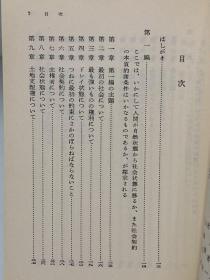 目次
はしがき
第一編
ここでは、いかにして人間が自然状態から社会状態に移るか、また社会契約
の本質的諸条件はいかなるものであるか、が探求される
第一章 第一編の主題
第二章 最初の社会について
第三章 最も強いものの権利について
第四章 ドレイ状態について
第五章 つねに最初の約束にさかのぼらねばならないこと
第六章 社会契約について
第七章 主権者について
第八章 社会状態について
第九章 土地支配権について
目次